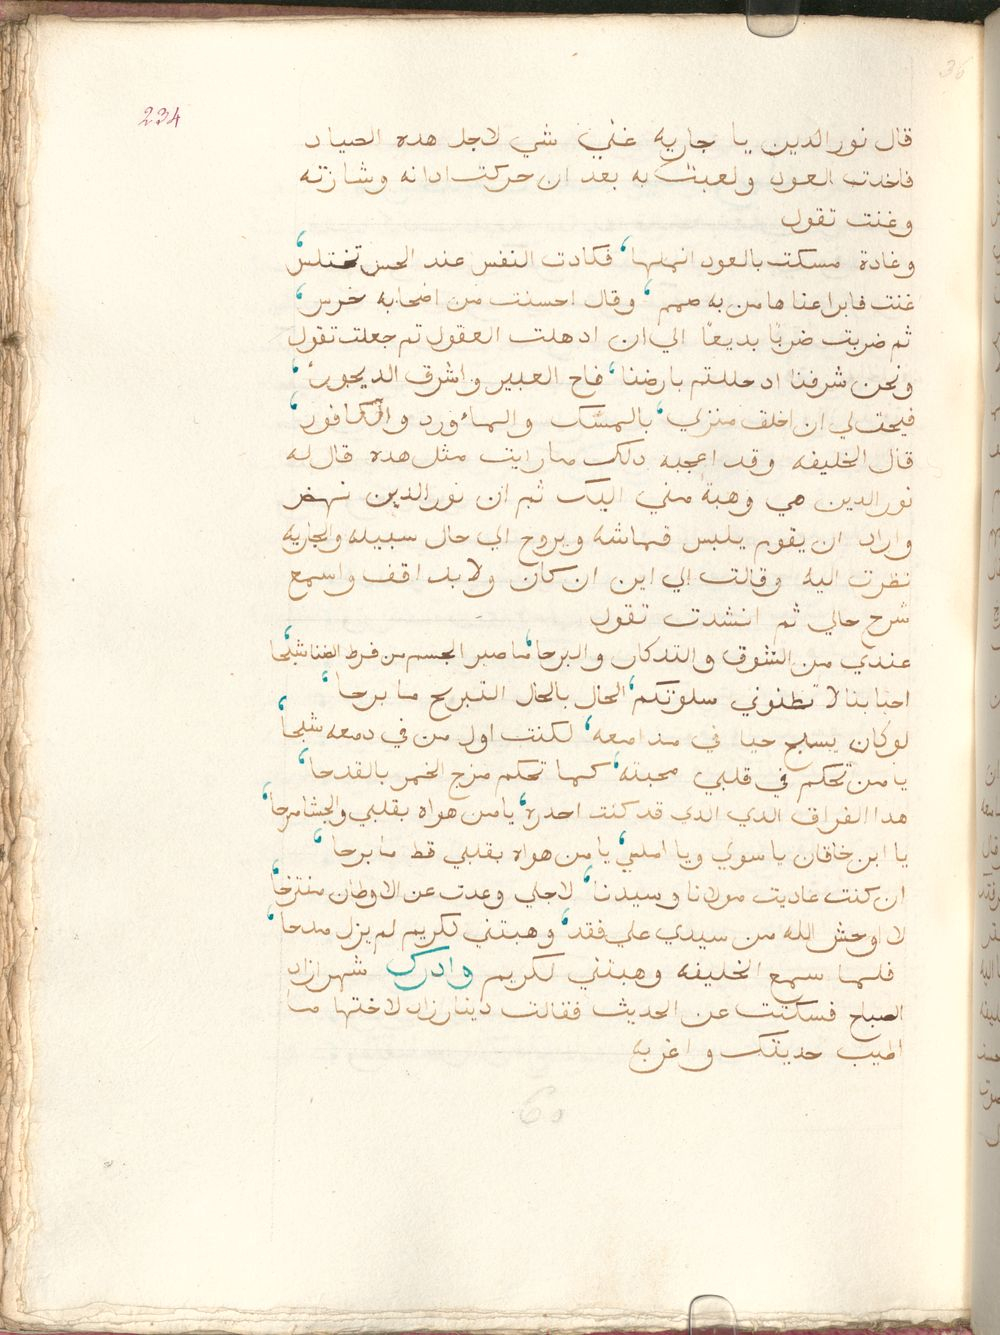 36
234
قال نور الدين يا جاريه غني شي لاجل هده الصياد
فاخدت العود ولعبت به بعد ان حركت ادانه وشازته
وغنت تقول
وغادة مسكت بالعود انملها، فكادت النفس عند الحس تختلس،
غنت فابرا غناها من به صمم، وقال احسنت من اضحا به خرس،
ثم ضربت ضربًا بديعًا الي ان ادهلت العقول تم جعلت تقول
ونحن شرفنا ادحللتم بارضنا، فاح العبير واشرق الديجور،
فيحق لي ان اخلف منزلي، بالمسك والماء ورد والكافور،
قال الخليفه وقد اعجبه دلك ما رايت مثل هده قال له
نور الدين هي وهبة مني اليك ثم ان نور الدين نهض
واراد ان يقوم يلبس قماشه ويروح الي حال سبيله والجاريه
نظرت اليه وقالت الي اين ان كان ولا بد اقف واسمع
شرح حالي ثم انشدت تقول
عندي من الشوق والتدكار والبرحا، ما صير الجسم من فرط الضنا شبحا،
احبابنا لا تظنوني سلوتكم، الحال بالحال التبريح ما برحا،
لو كان يسبح حيا في مدامعه، لكنت اول من في دمعه شبحا،
يا من تحكم في قلبي محبته، كما تحكم مزج الخمر بالقدحا،
هدا الفراق الدي الدي قد كنت احدره، يا من هواه بقلبي والحشا مرحا،
يا ابن خاقان يا سولي ويا املي، يا من هواه بقلبي قط ما برحا،
ان كنت عاديت مولانا وسيدنا، لاجلي وعدت عن الاوطان منتزحا،
لا اوحش الله من سيدي علي فقد، وهبتني لكريم لم يزل مدحا،
فلما سمع الخليفه وهبتني لكريم وادرك شهرازاد
الصباح فسكتت عن الحديث فقالت دينارزاد لاختها ما
اطيب حديتك واغربه